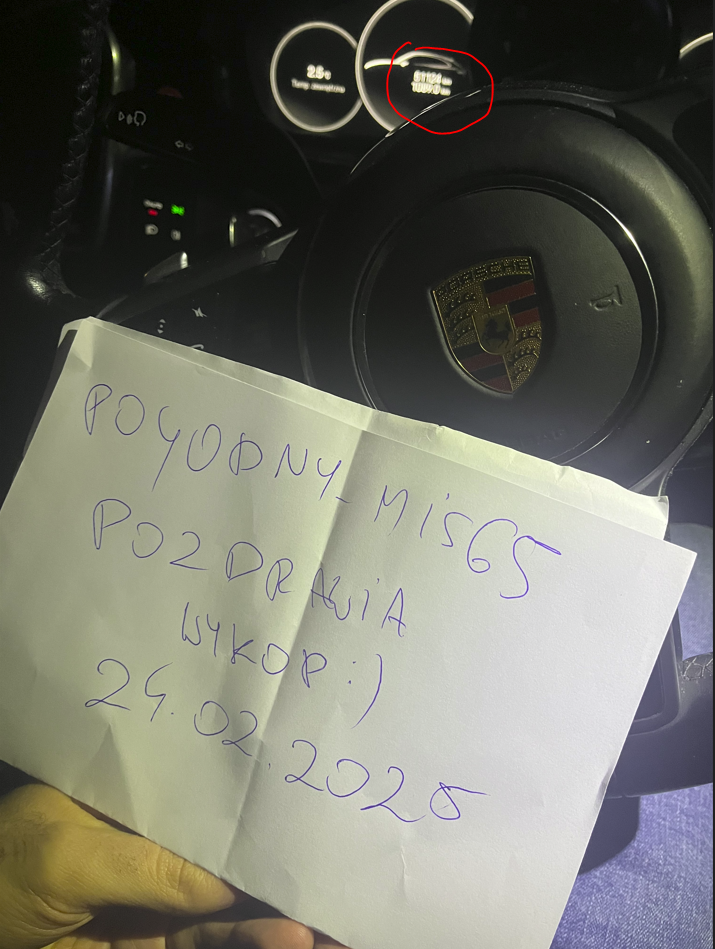 2.5°C
Temp. zewnętrzna
61124 km
POGODNY_MIS65
POZDRAWIA
WYKOP:)
24.02.2025